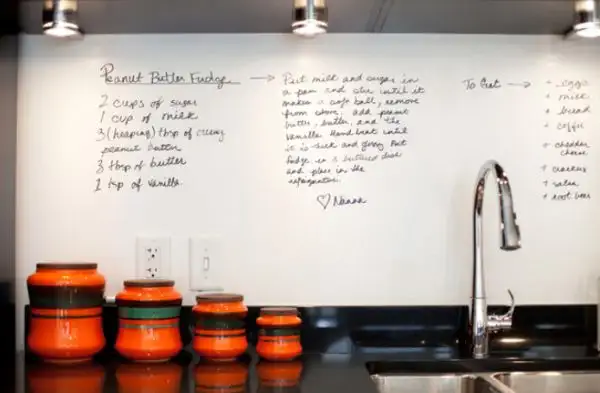 Peanut Butter Fudge →
2 cups of sugar
1 cup of milk
3 (heaping) tbsp of creamy
peanut butter
3 tbsp of butter
1 tsp of vanilla.
Put milk and sugar in
a pan and stir until it
makes a soft ball, remove
from stove, add peanut
butter, butter, and the
vanilla. Hand beat until
it is thick and glossy. Put
fudge in a buttered dish
and place in the
refrigerator.
♡ Nanna
To Get →
+ eggs
+ milk
+ bread
+ coffee
+ cheddar
cheese
+ crackers
+ salsa
+ root beer